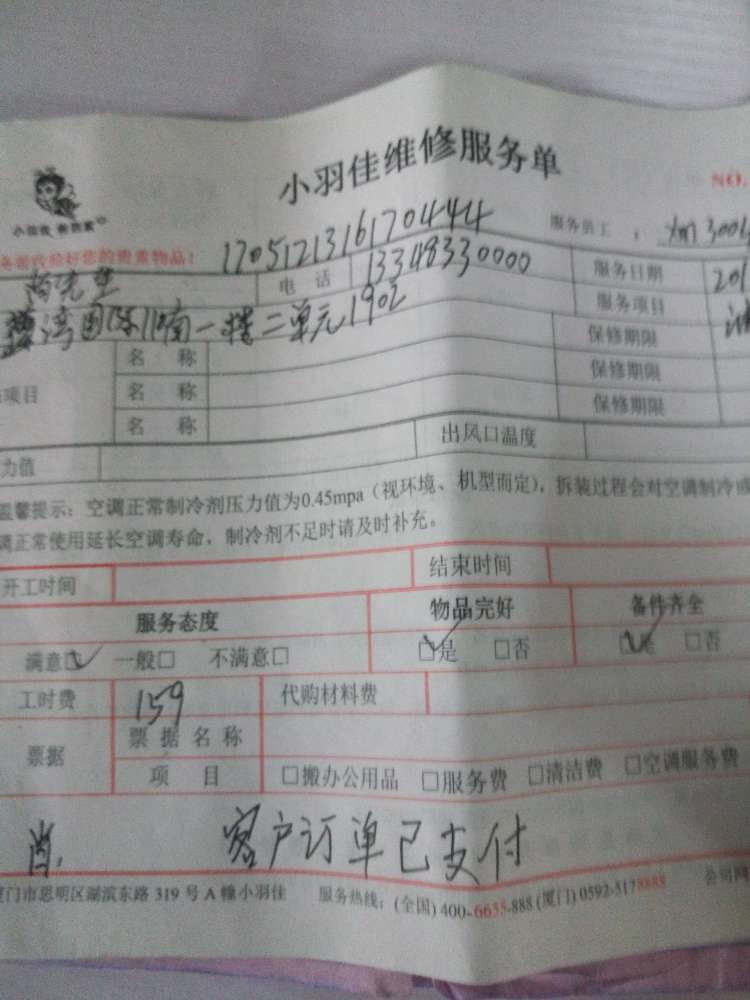 小羽佳维修服务单
NO.
小羽佳
务请收验好您的贵重物品!
17051213161704444
服务员工:
先生
电 话
13348330000
服务日期
201
湾国际 南一楼二单元1902
服务项目
名 称
保修期限
项目
名 称
保修期限
名 称
保修期限
力值
出风口温度
温馨提示:空调正常制冷剂压力值为0.45mpa(视环境、机型而定),拆装过程会对空调制冷或
调正常使用延长空调寿命,制冷剂不足时请及时补充。
开工时间
结束时间
服务态度
物品完好
备件齐全
满意☑ 一般□ 不满意□
☑是 □否
☑是 □否
工时费
159
代购材料费
票据
票 据 名 称
项 目
□搬办公用品 □服务费 □清洁费 □空调服务费
肖.
客户订单已支付
厦门市思明区湖滨东路 319 号 A 幢小羽佳
服务热线:(全国) 400-6655-888 (厦门) 0592-5178888
公司网